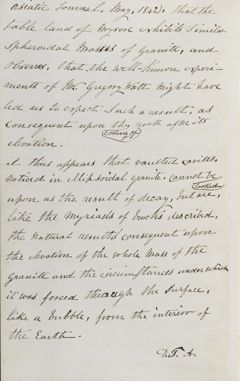 Asiatic Journal, May, 1842). that the
table land of Mysore exhibits similar
Spheroidal Masses of Granite, and
observes, that the well-known experi-
ments of Mr. Gregory Watt might have
led us to expect such a result; as
consequent upon the cooling of rock after its
elevation.
it thus appears that vaulted cavities
noticed in Ellipsoidal granite cannot be
looked
upon as the result of decay, but are,
like the Myriads of rocks described,
the natural results consequent upon
the elevation of the whole mass of the
Granite and the circumstances under which
it was forced through the Surface,
like a bubble, from the interior of
the Earth.
D. T. A.